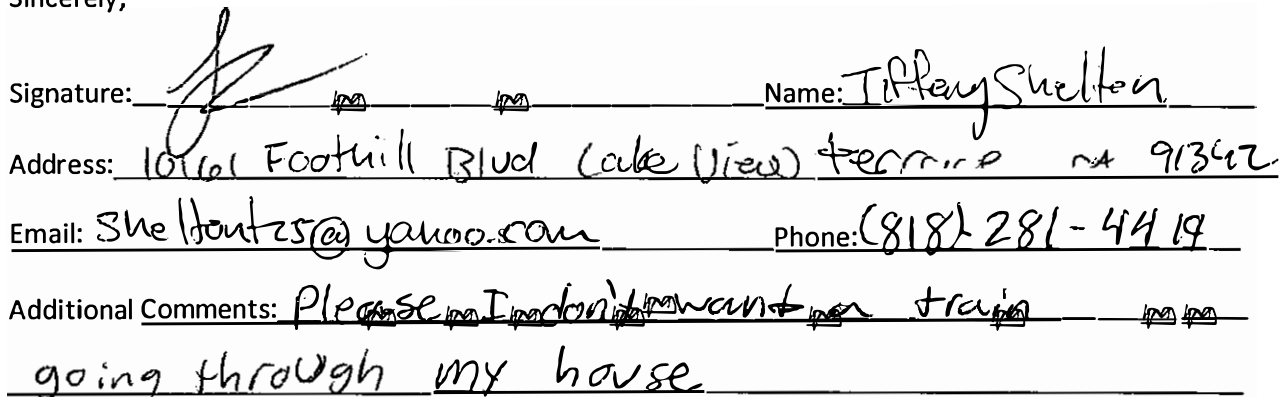 Sincerely,
Signature: Name: Tiffany Shelton
Address: Foothill Blvd Lake View Terrace
Email: Phone: (818) 281-4419
Additional Comments: Please I don't want a train
going through my house